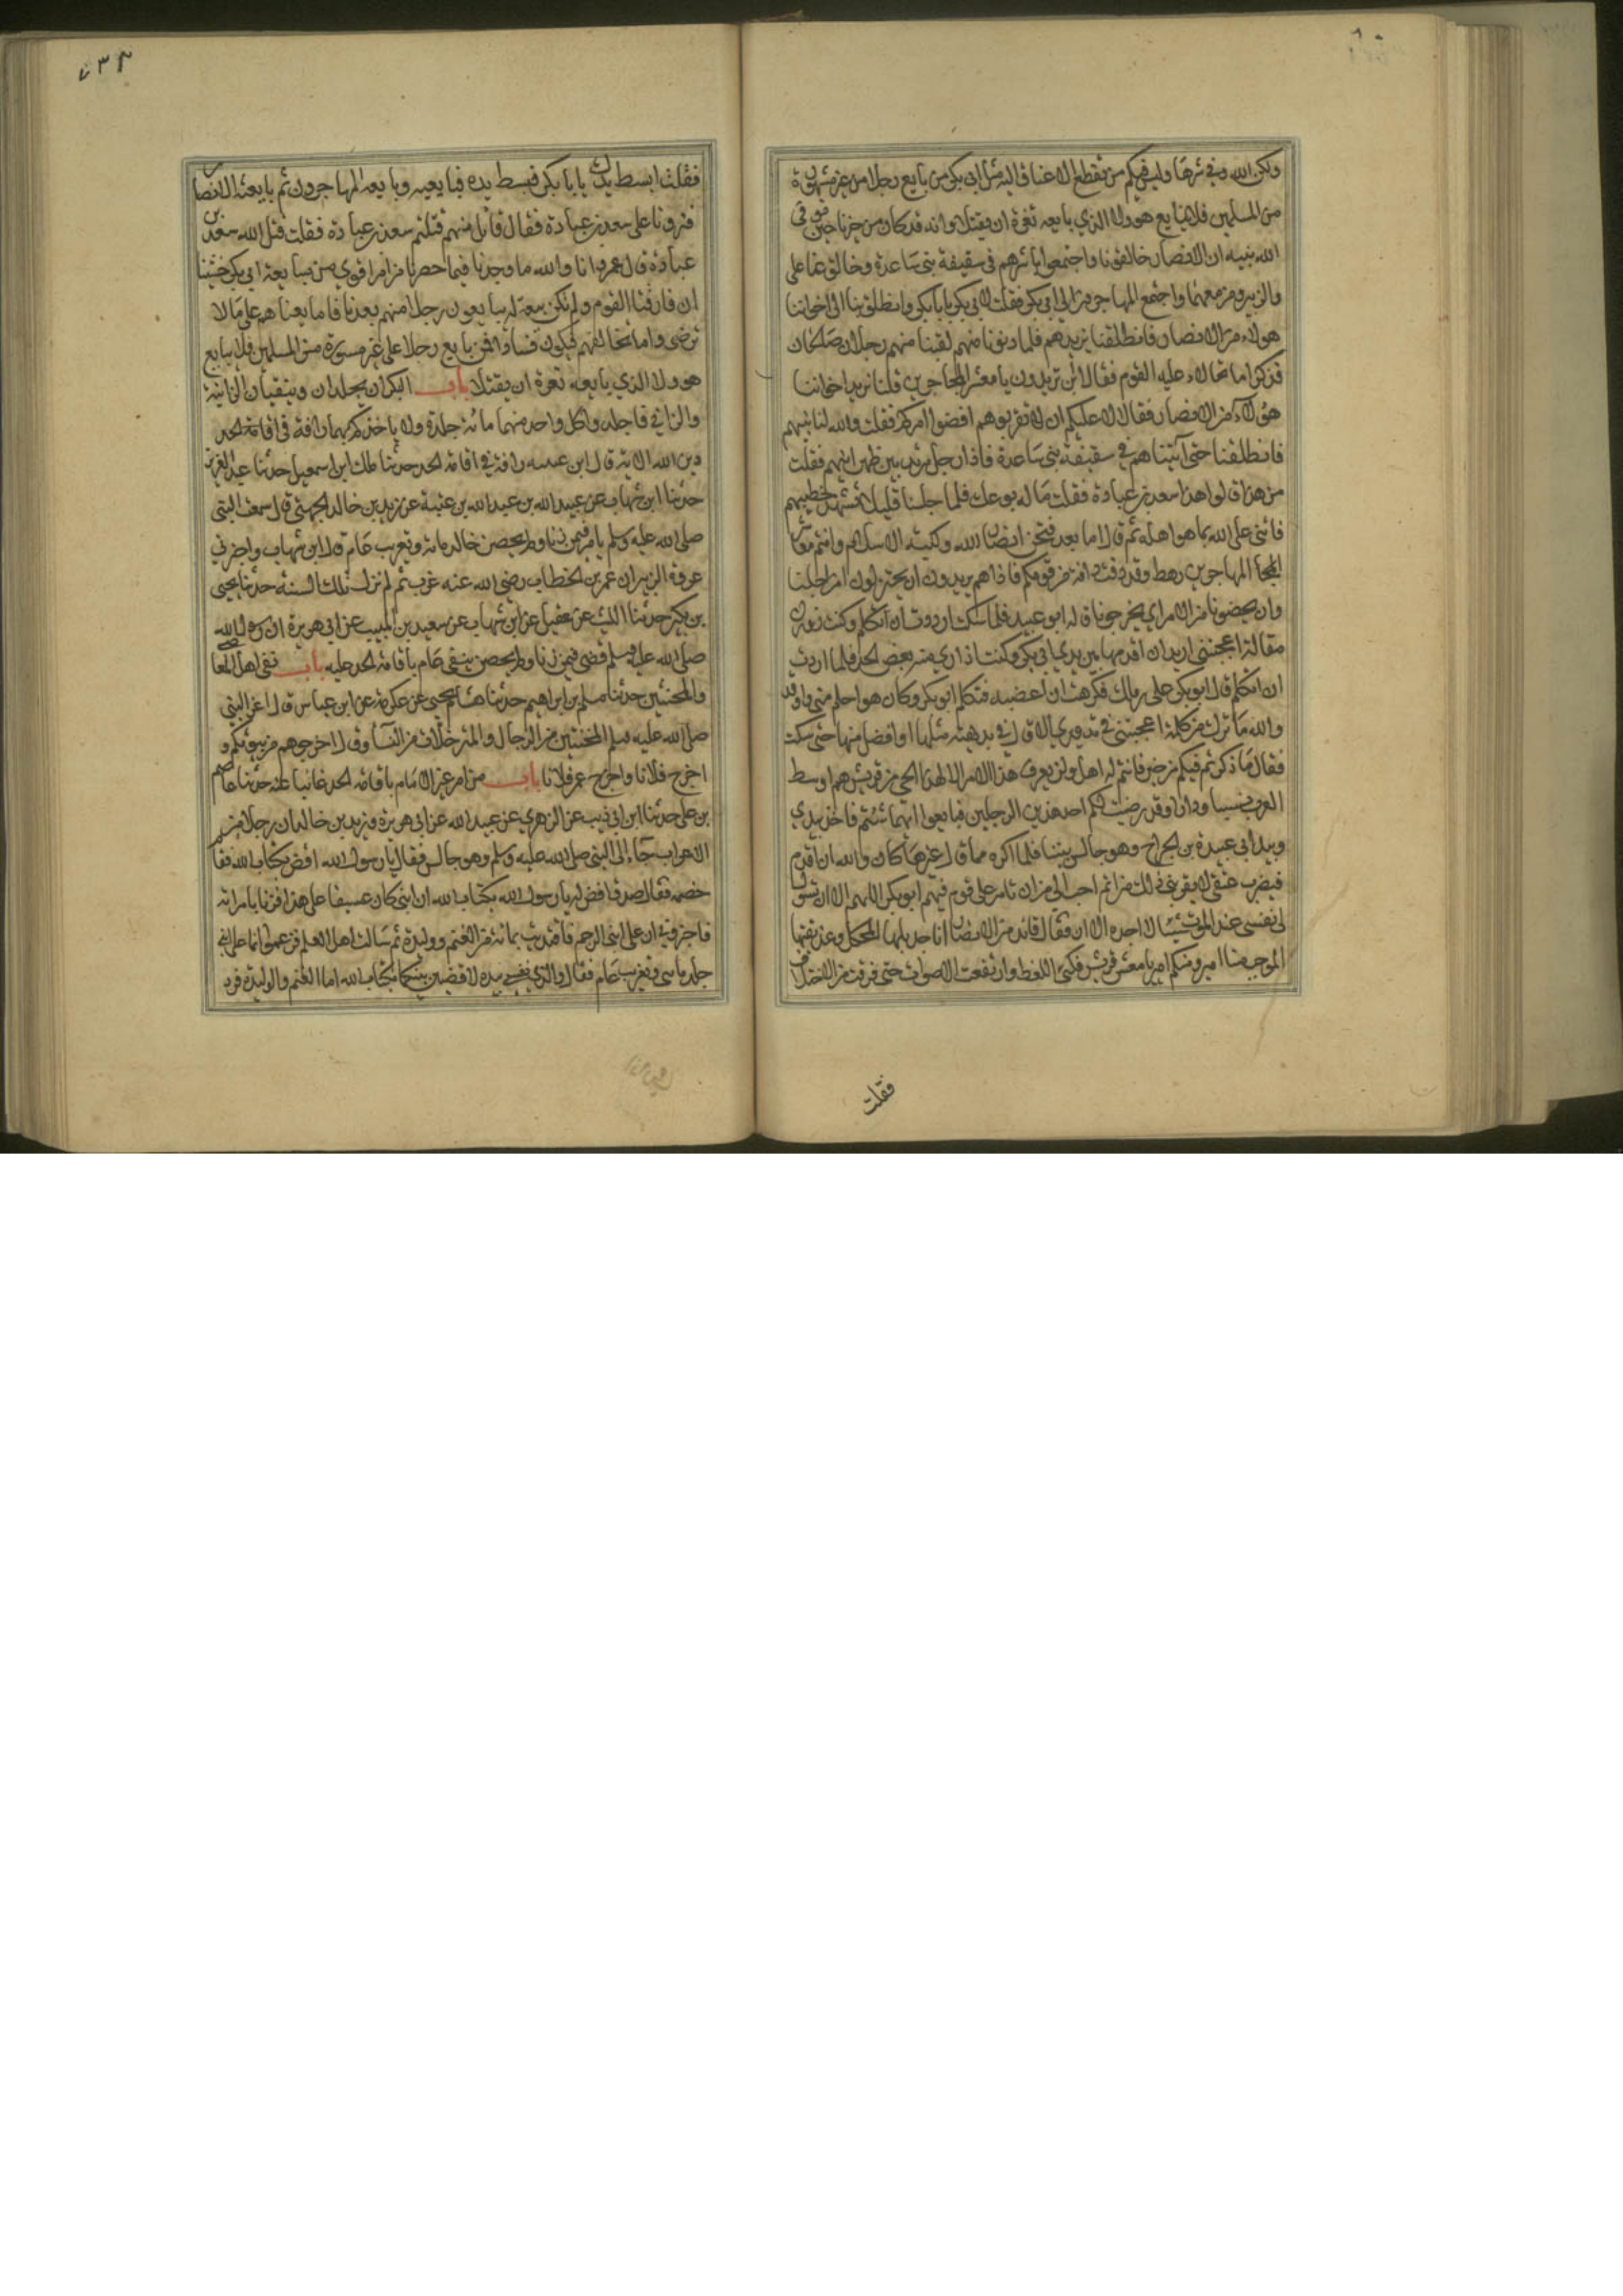 ولكن الله وقى شرها وليس فيكم من تقطع الاعناق اليه مثل ابي بكر من بايع رجلا من غير مشورة
من المسلمين فلا يبايع هو ولا الذي بايعه تغرة ان يقتلا وانه قد كان من خبرنا حين توفى
الله نبيه ان الانصار خالفونا واجتمعوا باسرهم في سقيفة بني ساعدة وخالف عنا علي
والزبير ومن معهما واجتمع المهاجرون الى ابي بكر فقلت لابي بكر يابا بكر انطلق بنا الى اخواننا
هولاء من الانصار فانطلقنا نريدهم فلما دنونا منهم لقينا منهم رجلان صالحان
فذكرا ما تمالاء عليه القوم فقالا اين تريدون يا معشر المهاجرين قلنا نريد اخواننا
هؤلاء من الانصار فقالا لا عليكم ان لا تقربوهم اقضوا امركم فقلت والله لناتينهم
فانطلقنا حتى آتيناهم في سقيفة بني ساعدة فاذا رجل مزمل بين ظهرانيهم فقلت
من هذا قالوا هذا سعد بن عبادة فقلت ما له يوعك فلما جلسنا قليلا تشهد خطيبهم
فاثنى على الله بما هو اهله ثم قال اما بعد فنحن انصار الله وكتيبة الاسلام وانتم معاشر
المهاجرين رهط وقد دفت دافة من قومكم فاذا هم يريدون ان يختزلونا من اصلنا
وان يحضونا من الامر اي يخرجونا قاله ابو عبيد فلما سكت اردت ان اتكلم وكنت زورت
مقالة اعجبتني اريد ان اقدمها بين يدي ابي بكر وكنت اداري منه بعض الحد فلما اردت
ان اتكلم قال ابو بكر على رسلك فكرهت ان اغضبه فتكلم ابو بكر وكان هو احلم مني واوقر
والله ما ترك من كلمة اعجبتني في تزويري الا قال في بديهته مثلها او افضل منها حتى سكت
فقال ما ذكرتم فيكم من خير فانتم له اهل ولن يعرف هذا الامر الا لهذا الحي من قريش هم اوسط
العرب نسبا ودارا وقد رضيت لكم احد هذين الرجلين فبايعوا ايهما شئتم فاخذ بيدي
وبيد ابي عبيدة بن الجراح وهو جالس بيننا فلم اكره مما قال غيرها كان والله ان اقدم
فيضرب عنقي لا يقربني ذلك من اثم احب الي من ان تامر على قوم فيهم ابو بكر اللهم الا ان تسول
لي نفسي عند الموت شيئا لا اجده الان فقال قائد من الانصار انا جديلها المحكك وعذيقها
المرجب منا امير ومنكم امير يا معشر قريش فكثر اللغط وارتفعت الاصوات حتى فرقت من الاختلاف
فقلت
فقلت ابسط يدك يابا بكر فبسط يده فبايعته وبايعه المهاجرون ثم بايعته الانصار
ونزونا على سعد بن عبادة فقال قائل منهم قتلتم سعد بن عبادة فقلت قتل الله سعد بن
عبادة قال عمر وانا والله ما وجدنا فيما حضرنا من امر اقوى من مبايعة ابي بكر خشينا
ان فارقنا القوم ولم تكن بيعة ان يبايعون رجلا منهم بعدنا فاما بايعناهم على ما لا
نرضى واما نخالفهم فيكون فسادا فمن بايع رجلا على غير مشورة من المسلمين فلا يبايع
هو ولا الذي بايعه تغرة ان يقتلا باب البكران يجلدان وينفيان الزانية
والزاني فاجلدوا كل واحد منهما مائة جلدة ولا ياخذكم بهما رافة في اقامة الحد
دين الله الاية قال ابن عيينه رافة في اقامة الحد حدثنا مالك ابن اسمعيل حدثنا عبد العزيز
حدثنا ابن شهاب عن عبيد الله بن عبد الله بن عتبة عن زيد بن خالد الجهني قال سمعت النبي
صلى الله عليه وسلم يامر فيمن زنا ولم يحصن جلد مائة وتغريب عام قال ابن شهاب واخبرني
عروة الزبير ان عمر بن الخطاب رضي الله عنه غرب ثم لم تزل تلك السنة حدثنا يحيى
بن بكير حدثنا الليث عن عقيل عن ابن شهاب عن سعيد بن المسيب عن ابي هريرة ان رسول الله
صلى الله عليه وسلم قضى فيمن زنا ولم يحصن بنفي عام باقامة الحد عليه باب نفي اهل المعاصي
والمخنثين حدثنا مسلم بن ابراهيم حدثنا هشام يحيى عن عكرمة عن ابن عباس قال لعن النبي
صلى الله عليه وسلم المخنثين من الرجال والمترجلات من النسآ وقال اخرجوهم من بيوتكم و
اخرج فلانا واخرج عمر فلانا باب من امر غير الامام باقامة الحد غائبا عنه حدثنا عاصم
بن علي حدثنا ابن ابي ذيب عن الزهري عن عبيد الله عن ابي هريرة وزيد بن خالد ان رجلا من
الاعراب جآء الى النبي صلى الله عليه وسلم وهو جالس فقال يا رسول الله اقض بكتاب الله فقام
خصمه فقال صدق اقض له يا رسول الله بكتاب الله ان ابني كان عسيفا على هذا فزنا بامراته
فاخبروني ان على ابني الرجم فافتديت بمائة من الغنم ووليدة ثم سالت اهل العلم فزعموا انما على ابني
جلد مائة وتغريب عام فقال والذي نفسي بيده لاقضين بينكما بكتاب الله اما الغنم والوليدة فرد